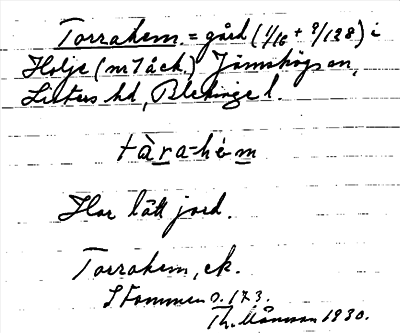 Torrahem = gård (1/16 + 9/128) i
Holje (nr 7 åck.) Jämshögs sn,
Listers hd, Blekinge l.
tàra-hèm
Har lätt jord.
Torrahem, ek.
S. 173.
Th. Månsson 1930.